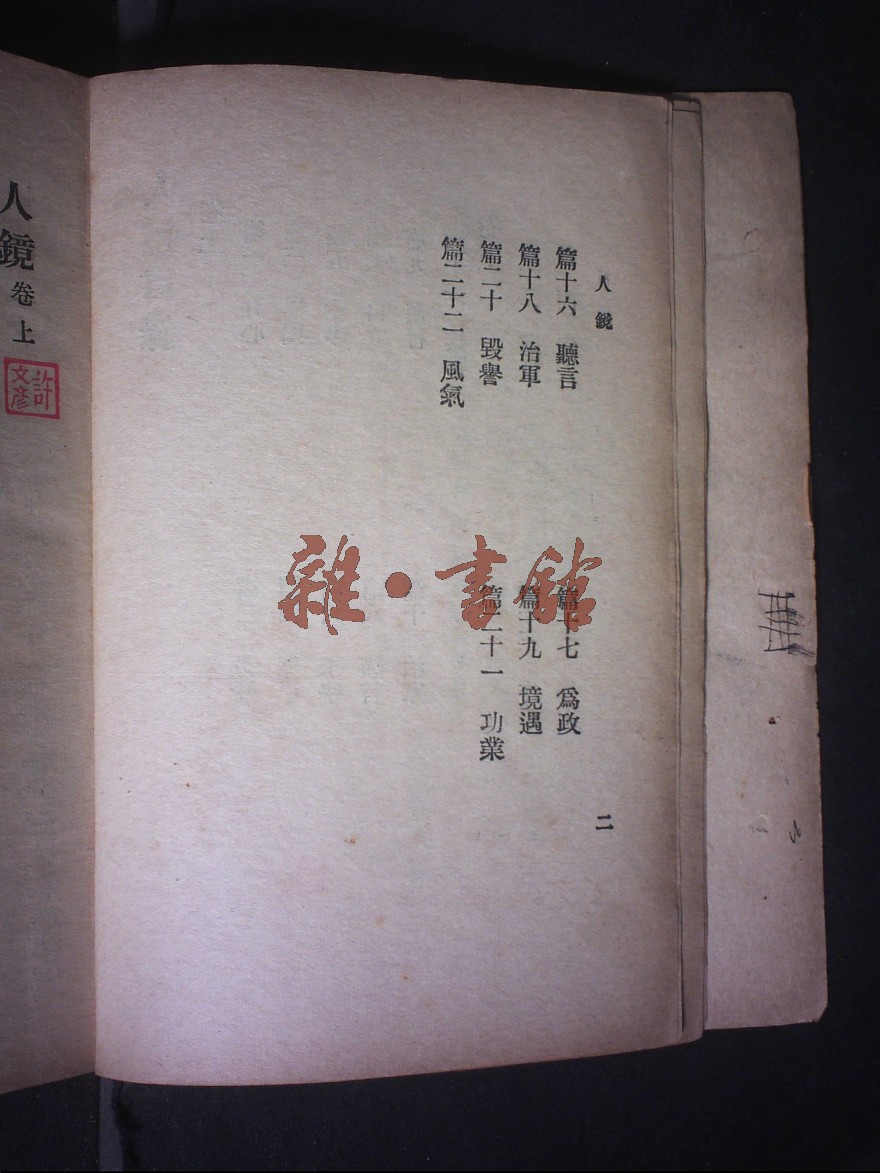 人鏡
篇十六　聽言
篇十七　爲政
篇十八　治軍
篇十九　境遇
篇二十　毀譽
篇二十一　功業
篇二十二　風氣
二
人鏡卷上
許文彥
雜·書館